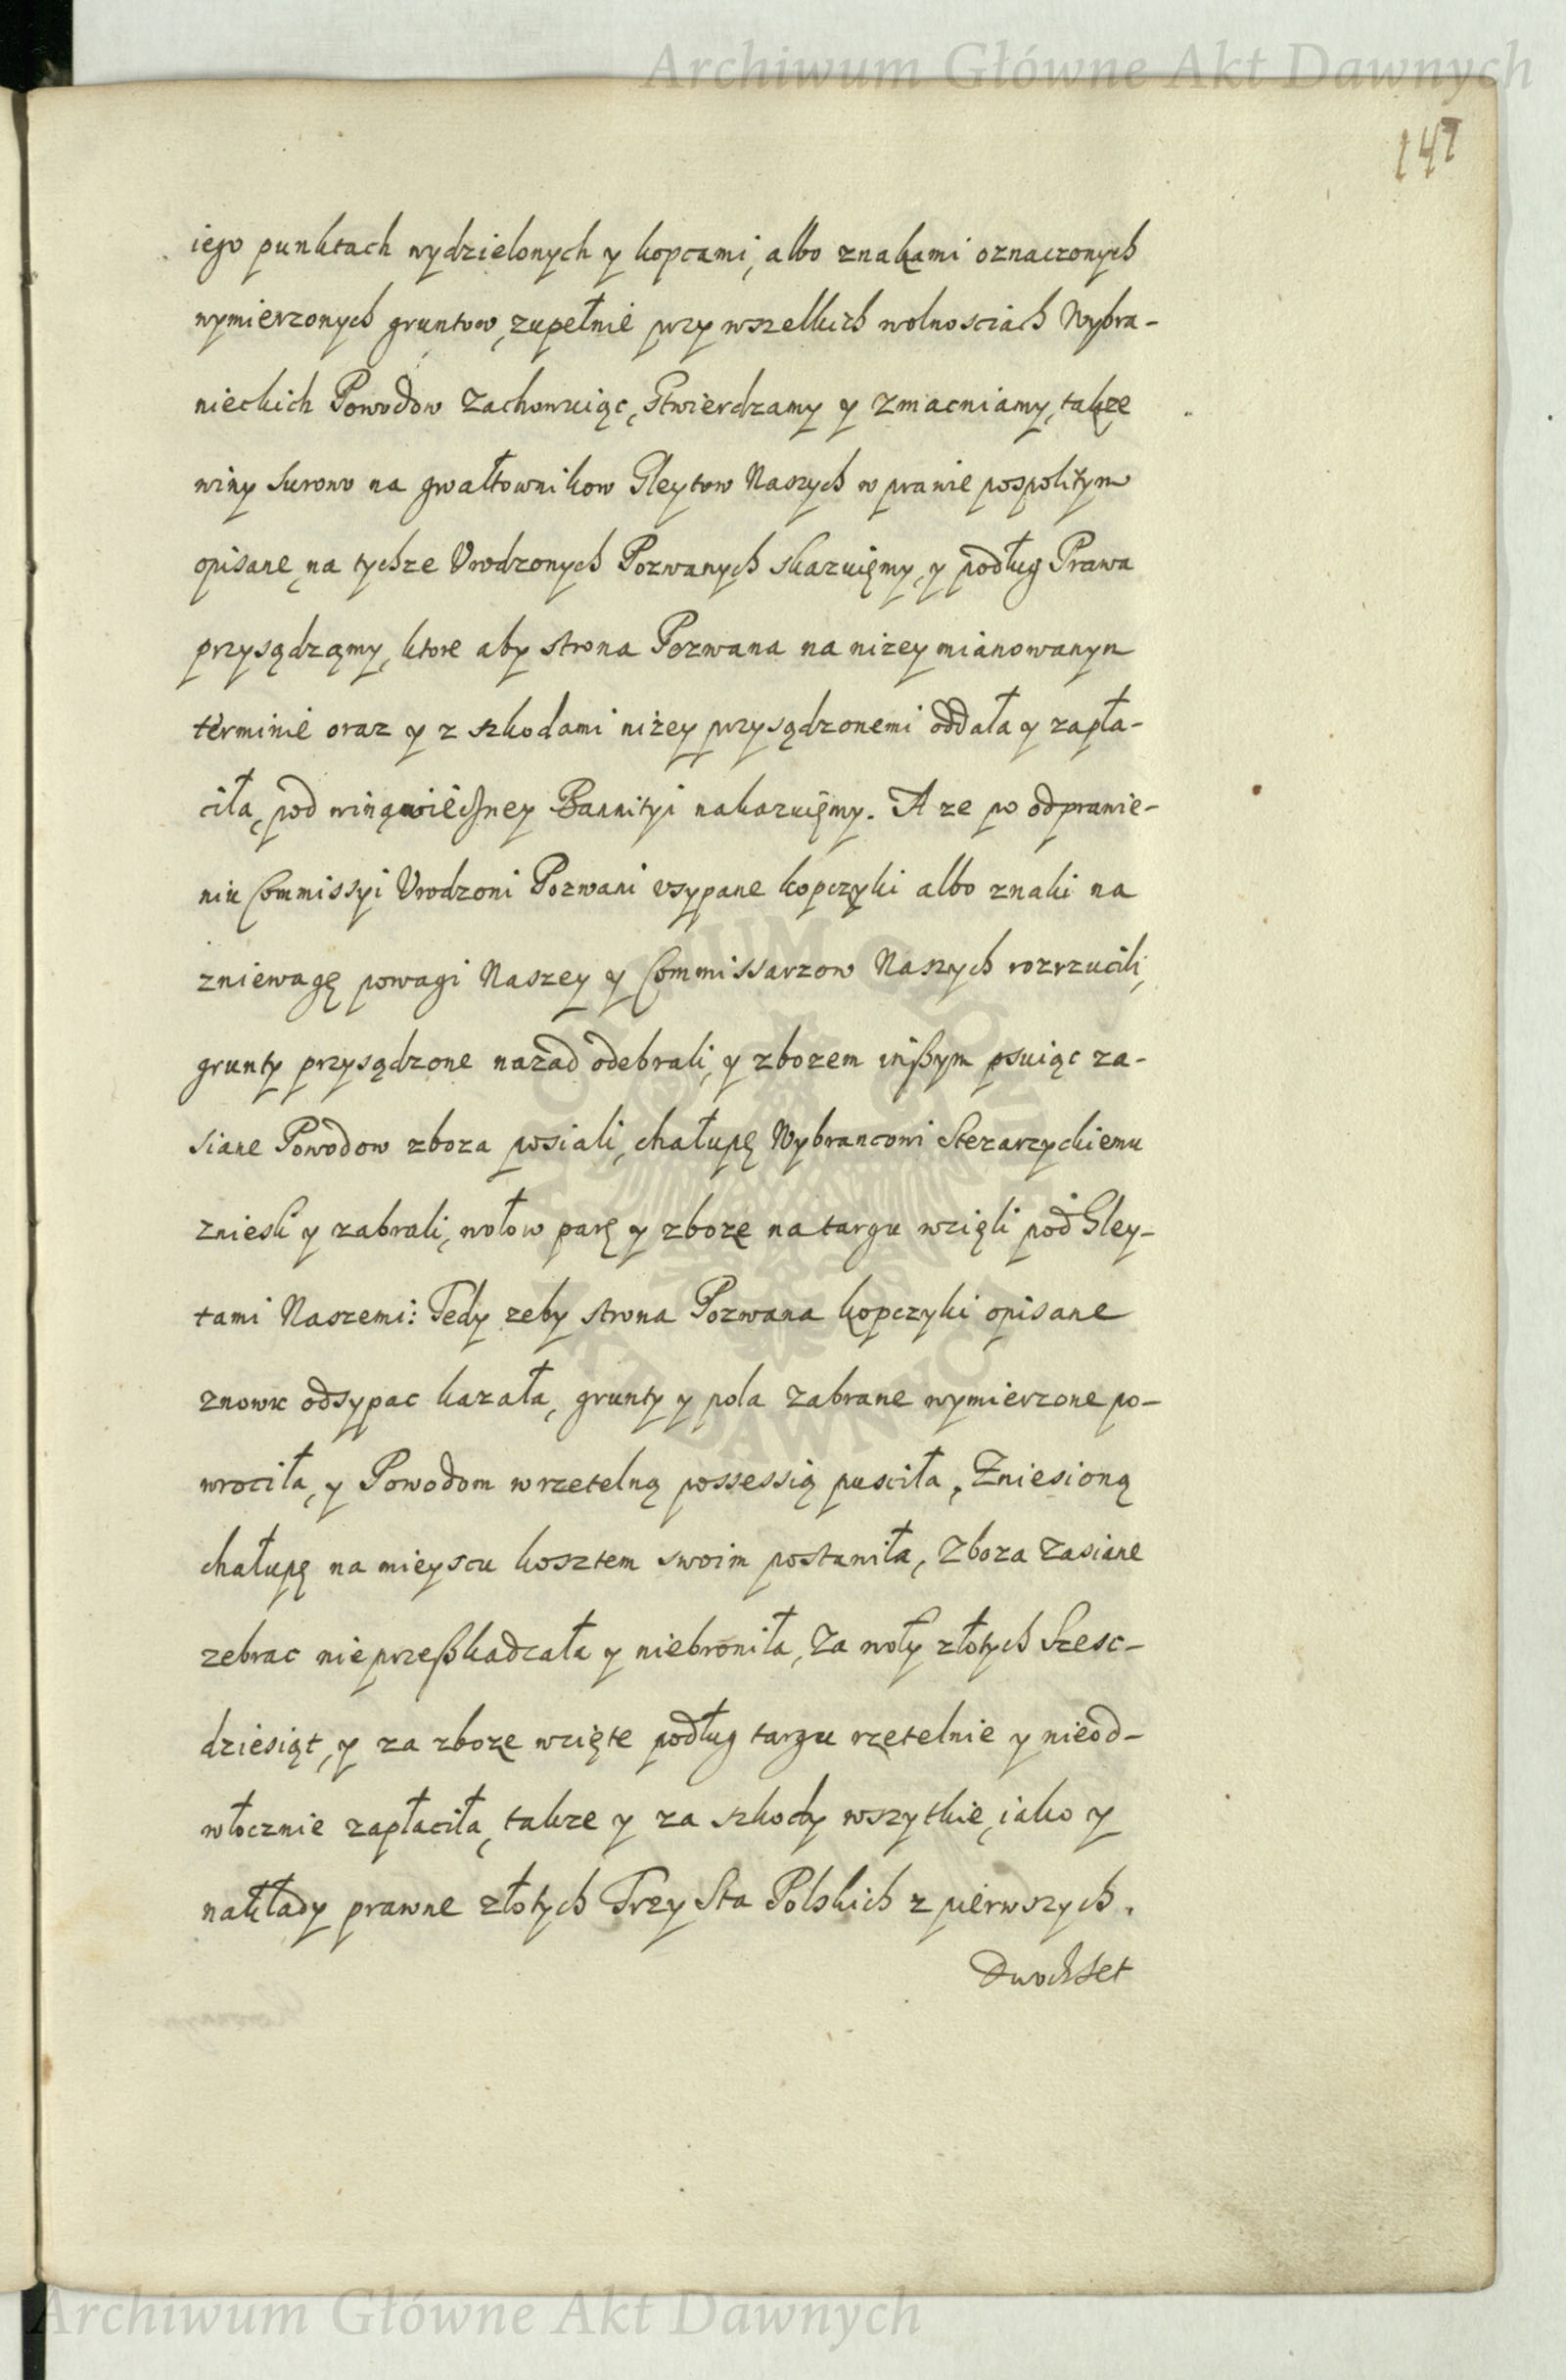 Archiwum Główne Akt Dawnych
147
iego punktach wydzielonych y kopcami, albo znakami oznaczonych
wymierzonych gruntow, zupełnie przy wszelkich wolnosciach Wybra-
nieckich Powodow zachowuiąc, Stwierdzamy y zmacniamy, takze
winy surowo na gwałtownikow Gleytow Naszych w prawie pospolitym
opisane, na tychze Vrodzonych Pozwanych skazuięmy, y podług Prawa
przysądzamy, ktore aby strona Pozwana na nizey mianowanym
terminie oraz y z szkodami niżey przysądzonemi oddała y zapła-
ciła, pod winą wieczney Bannityi nakazuięmy. A ze po odprawie-
niu Commissyi Vrodzoni Pozwani vsypane kopczyki albo znaki na
zniewagę powagi Naszey y Commissarzow Naszych rozrzucili,
grunty przysądzone nazad odebrali, y zbozem inßym psuiąc za-
siane Powodow zboza posiali, chałupę Wybrancowi Stezarzyckiemu
zniesli y zabrali, wołow parę y zboze na targu wzięli pod Gley-
tami Naszemi: Tedy zeby strona Pozwana kopczyki opisane
znowu odsypac kazała, grunty y pola zabrane wymierzone po-
wrociła, y Powodom w rzetelną possessią pusciła, Zniesioną
chałupę na mieyscu kosztem swoim postawiła, Zboza zasiane
zebrac nie przeßkadzała y niebroniła, Za woły złotych Szesc-
dziesiąt, y za zboze wzięte podług targu rzetelnie y nieod-
włocznie zapłaciła, takze y za szkody wszytkie, iako y
nakłady prawne złotych Trzy Sta Polskich z pierwszych
Dwochset
Archiwum Główne Akt Dawnych